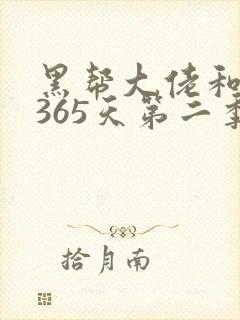 黑帮大佬和
365天第二季
拾月南